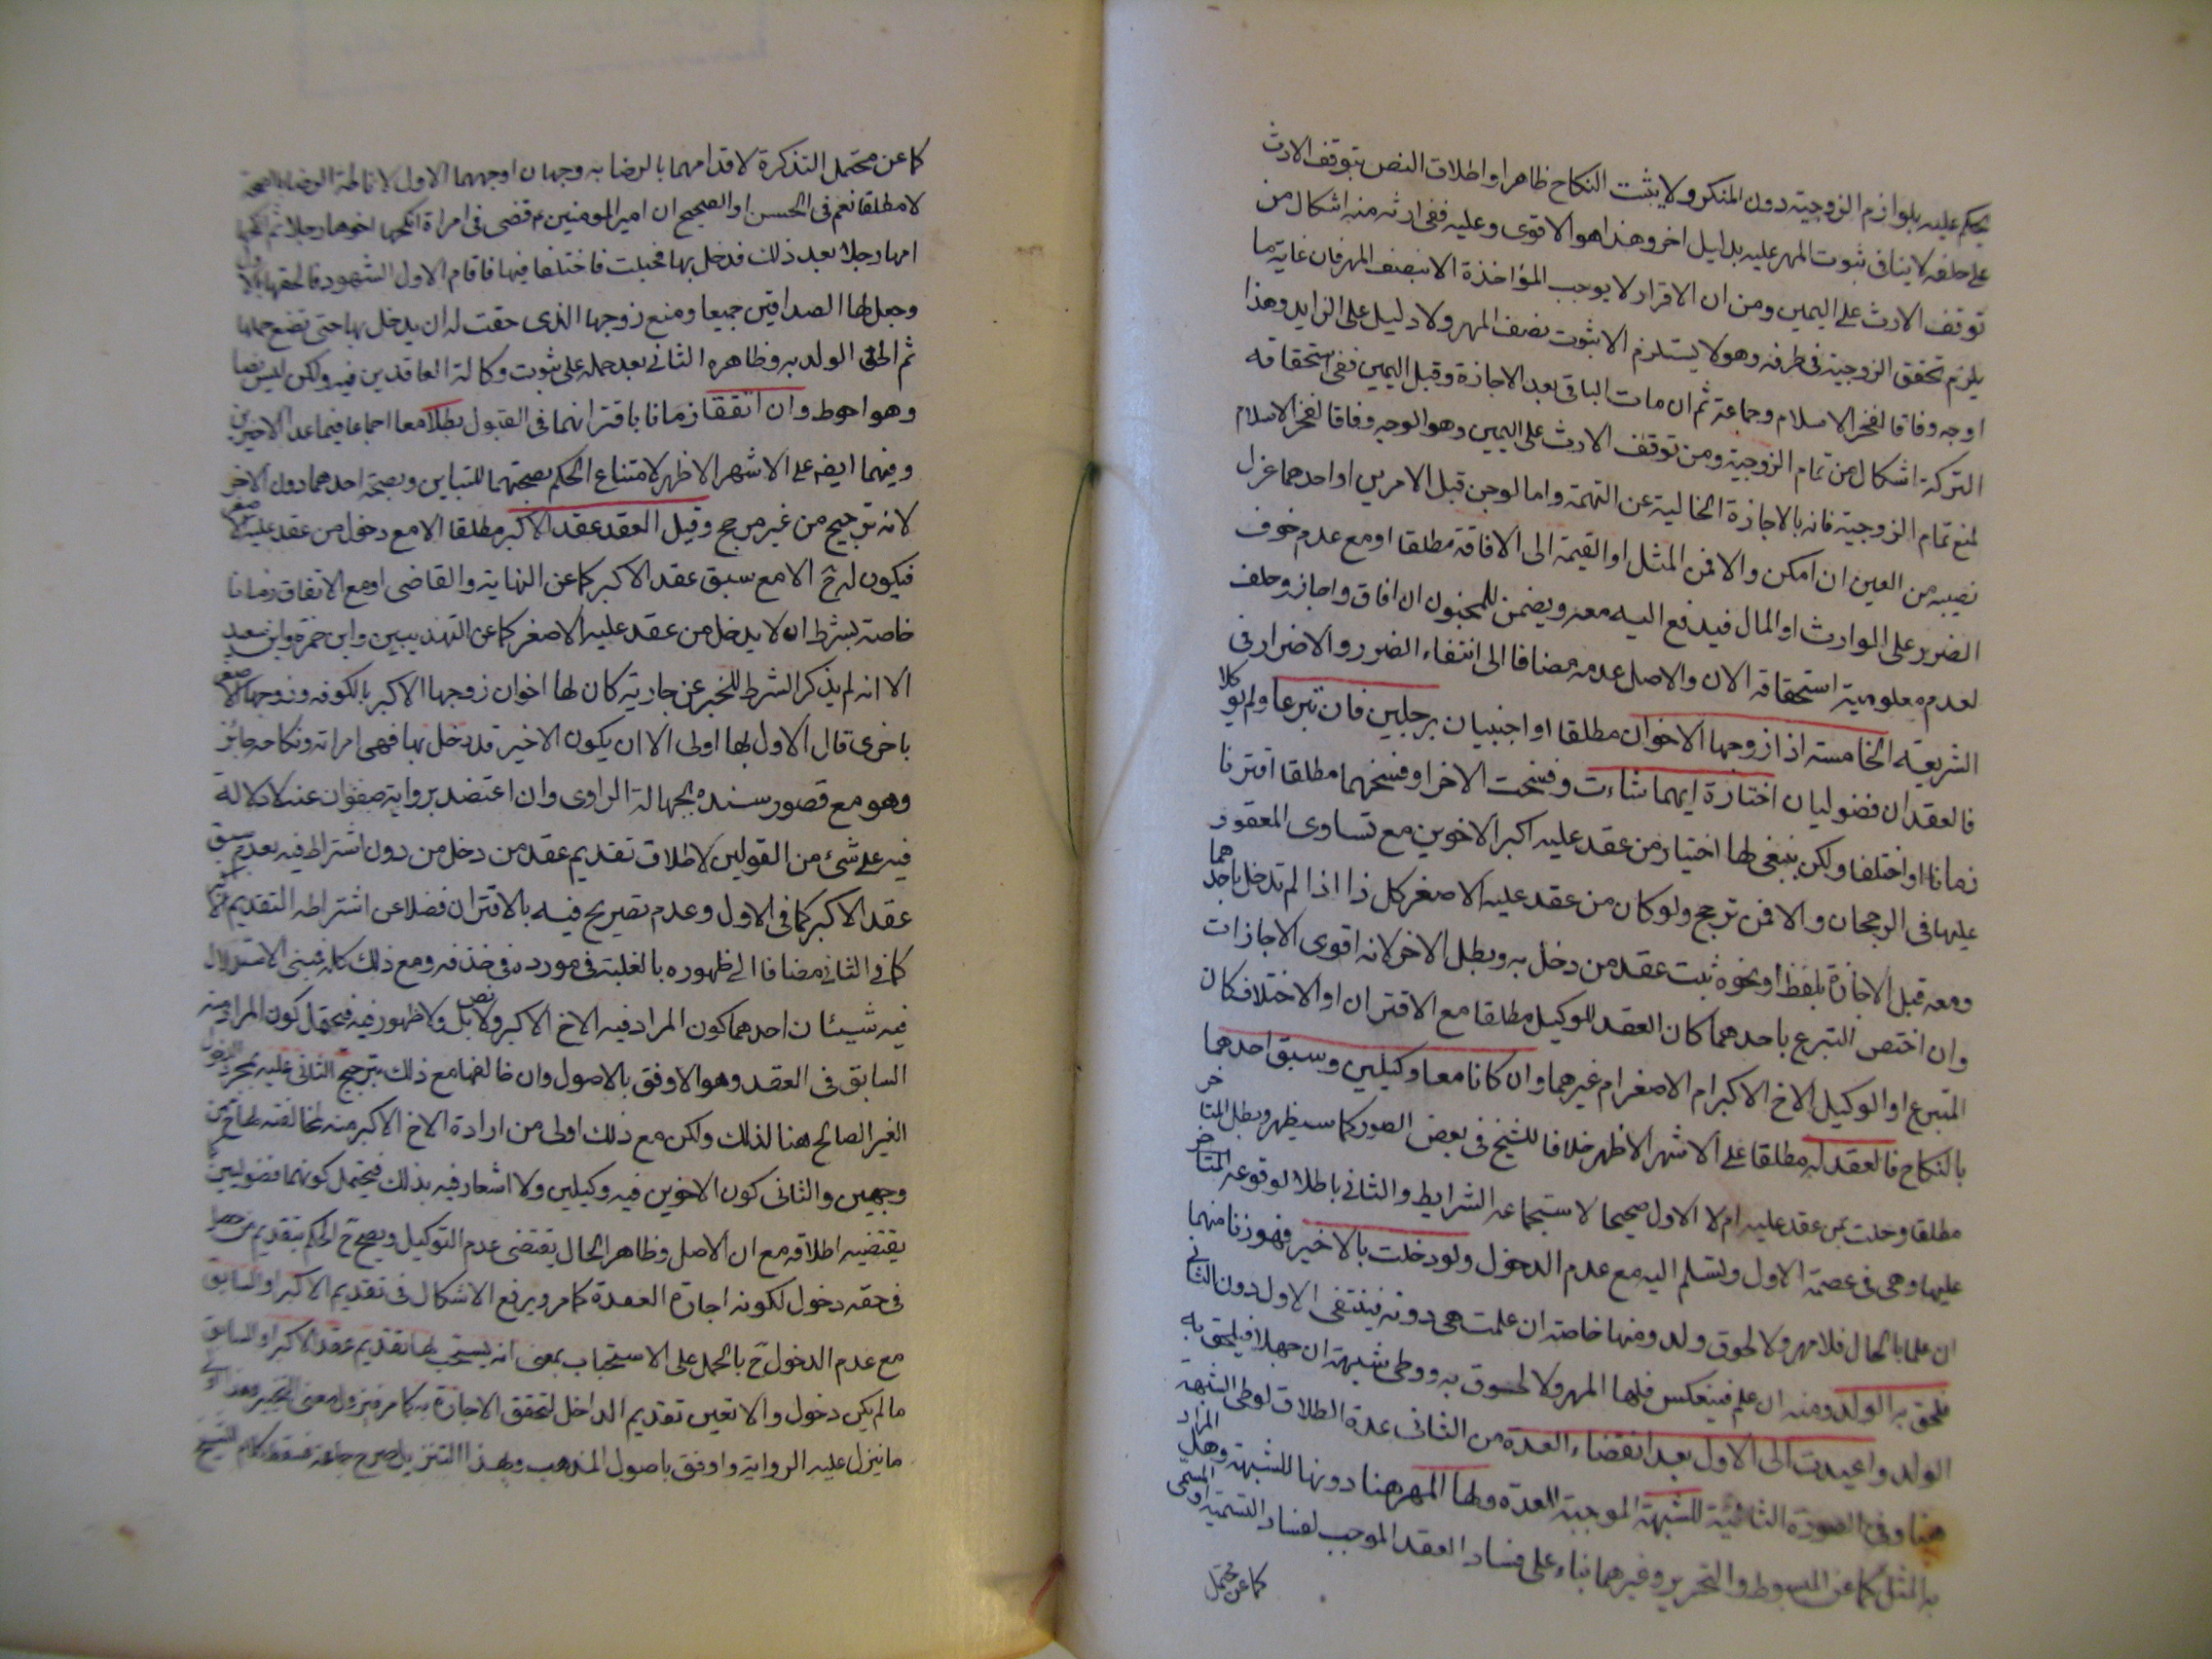 يحكم عليه بلوازم الزوجية دون المنكر ولا يثبت النكاح ظاهرا واطلاق النص بتوقف الارث
على حلفه لا ينافى ثبوت المهر عليه بدليل اخر وهذا هو الاقوى وعليه ففى ارثه منه اشكال من
توقف الارث على اليمين ومن ان الاقرار لا يوجب المؤاخذة الا بنصف المهر فان غاية ما
يلزم تحقق الزوجية فى طرفه وهو لا يستلزم الا ثبوت نصف المهر ولا دليل على الزايد وهذا
اوجه وفاقا لفخر الاسلام وجماعة ثم ان مات الباقى بعد الاجازة وقبل اليمين ففى استحقاقه
التركة اشكال من تمام الزوجية ومن توقف الارث على اليمين وهو الوجه وفاقا لفخر الاسلام
لمنع تمام الزوجية فانه بالاجازة الخالية عن التهمة واما لو جن قبل الامرين او احدهما عزل
نصيبه من العين ان امكن والا فمن المثل او القيمة الى الافاقة مطلقا او مع عدم خوف
الضرر على الوارث او المال فيدفع اليه معه ويضمن للمجنون ان افاق واجاز وحلف
لعدم معلومية استحقاقه الان والاصل عدمه مضافا الى انتفاء الضرر والاضرار فى
الشريعة الخامسة اذا زوجها الاخوان مطلقا او اجنبيان برجلين فان تبرعا ولم يوكلا
فالعقدان فضوليان اختارة ايهما شاءت وفسخت الاخر او فسخهما مطلقا اقترنا
زمانا او اختلفا ولكن ينبغى لها اختيار من عقد عليه اكبر الاخوين مع تساوى المعقود
عليهما فى الرجحان والا فمن ترجح ولو كان من عقد عليه الاصغر كل ذا اذا لم تدخل باحدهما
ومعه قبل الاجازة بلفظ او نحوه ثبت عقد من دخل به وبطل الاخر لانه اقوى الاجازات
وان اختص التبرع باحدهما كان العقد للوكيل مطلقا مع الاقتران او الاختلاف كان
المتبرع او الوكيل الاخ الاكبر ام الاصغر ام غيرهما وان كانا معا وكيلين وسبق احدهما
بالنكاح فالعقد له مطلقا على الاشهر الاظهر خلافا للشيخ فى بعض الصور كما سيظهر وبطل المتاخر
مطلقا دخلت بمن عقد عليه ام لا الاول صحيحا لاستجماعه الشرايط والثانى باطلا لوقوعه المتاخر
عليها وهى فى عصمة الاول وتسلم اليه مع عدم الدخول ولو دخلت بالاخير فهو زنا منهما
ان علما بالحال فلا مهر ولا لحوق ولد ومنها خاصة ان علمت هى دونه فينتفى الاول دون الثانى
فلحق به الولد ومنه ان علم فينعكس فلها المهر ولا لحوق به ووطى شبهة ان جهلا فيلحق به
الولد واعيدت الى الاول بعد انقضاء العدة من الثانى عدة الطلاق لوطى الشبهة
هنا وفى الصورة الثانية للشبهة الموجبة للعدة ولها المهر هنا دونها للشبهة وهل المراد
به المثل كما عن المبسوط والتحرير وغيرهما بناء على فساد العقد الموجب لفساد التسمية او المسمى
كما عن محتمل
كما عن محتمل التذكرة لاقدامهما بالرضا به وجهان اوجههما الاول لاناطة الرضا بالصحة
لا مطلقا نعم فى الحسن او الصحيح ان امير المومنين ع قضى فى امراة انكحها اخوها رجلا ثم انكحتها
امها رجلا بعد ذلك فدخل بها فحبلت فاختلفا فيها فاقام الاول الشهود فالحقها بالاول
وجعل لها الصداقين جميعا ومنع زوجها الذى حقت له ان يدخل بها حتى تضع حملها
ثم الحق الولد به وظاهره الثانى بعد حمله على ثبوت وكالة العاقدين فيه ولكن ليس نصا
وهو احوط وان اتفقا زمانا باقترانهما فى القبول بطلا معا اجماعا فيما عدا الاخيرين
وفيهما ايضا على الاشهر الاظهر لامتناع الحكم بصحتهما للتباين وبصحة احدهما دون الاخر
لانه ترجيح من غير مرجح وقيل العقد عقد الاكبر مطلقا الا مع دخول من عقد عليه الاصغر
فيكون له ح الا مع سبق عقد الاكبر كما عن النهاية والقاضى او مع الاتفاق زمانا
خاصة بشرط ان لا يدخل من عقد عليه الاصغر كما عن التهذيبين وابن حمزة وابن سعيد
الا انه لم يذكر الشرط للخبر عن جارية كان لها اخوان زوجها الاكبر بالكوفة وزوجها الاصغر
باخرى قال الاول بها اولى الا ان يكون الاخير قد دخل بها فهى امراته ونكاحه جائز
وهو مع قصور سنده بجهالة الراوى وان اعتضد برواية صفوان عنه لا دلالة
فيه على شئ من القولين لاطلاق تقديم عقد من دخل من دون اشتراط فيه بعدم سبق
عقد الاكبر كما فى الاول وعدم تصريح فيه بالاقتران فضلا عن اشتراطه التقديم
كما فى الثانى مضافا الى ظهوره بالغلبة فى مورده فى خذفه ومع ذلك كله فمبنى الاستدلال
فيه شيئان احدهما كون المراد فيه الاخ الاكبر ولا نص بل ولا ظهور فيه فيحتمل كون المراد منه
السابق فى العقد وهو الاوفق بالاصول وان خالفها مع ذلك بترجيح الثانى عليه بمجرد الدخول
الغير الصالح هنا لذلك ولكن مع ذلك اولى من ارادة الاخ الاكبر منه لمخالفته لها ح من
وجهين والثانى كون الاخوين فيه وكيلين ولا اشعار فيه بذلك فيحتمل كونهما فضوليين كما
يقتضيه اطلاقه مع ان الاصل وظاهر الحال يقتضى عدم التوكيل ويصح ح الحكم بتقديم من حصل
فى حقه دخول لكونه اجازة العقدة كما مر ويرفع الاشكال فى تقديم الاكبر او السابق
مع عدم الدخول ح بالحمل على الاستحباب بمعنى انه يستحب لها تقديم عقد الاكبر او السابق
ما لم يكن دخول والا تعين تقديم الداخل لتحقق الاجازة به كما مر فيزول معنى الخبر وهذا اولى
ما ينزل عليه الرواية واوفق باصول المذهب وبهذا التنزيل صرح جماعة فسقط كلام الشيخ